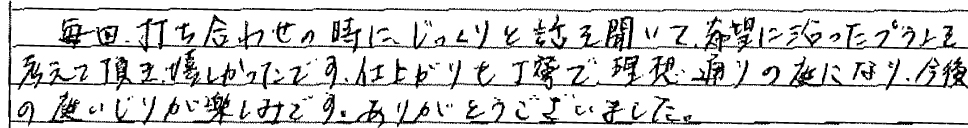 毎回、打ち合わせの時に、じっくりと話を聞いて、希望に沿ったプランを
考えて頂き、嬉しかったです。仕上がりも丁寧で、理想通りの庭になり、今後
の庭いじりが楽しみです。ありがとうございました。